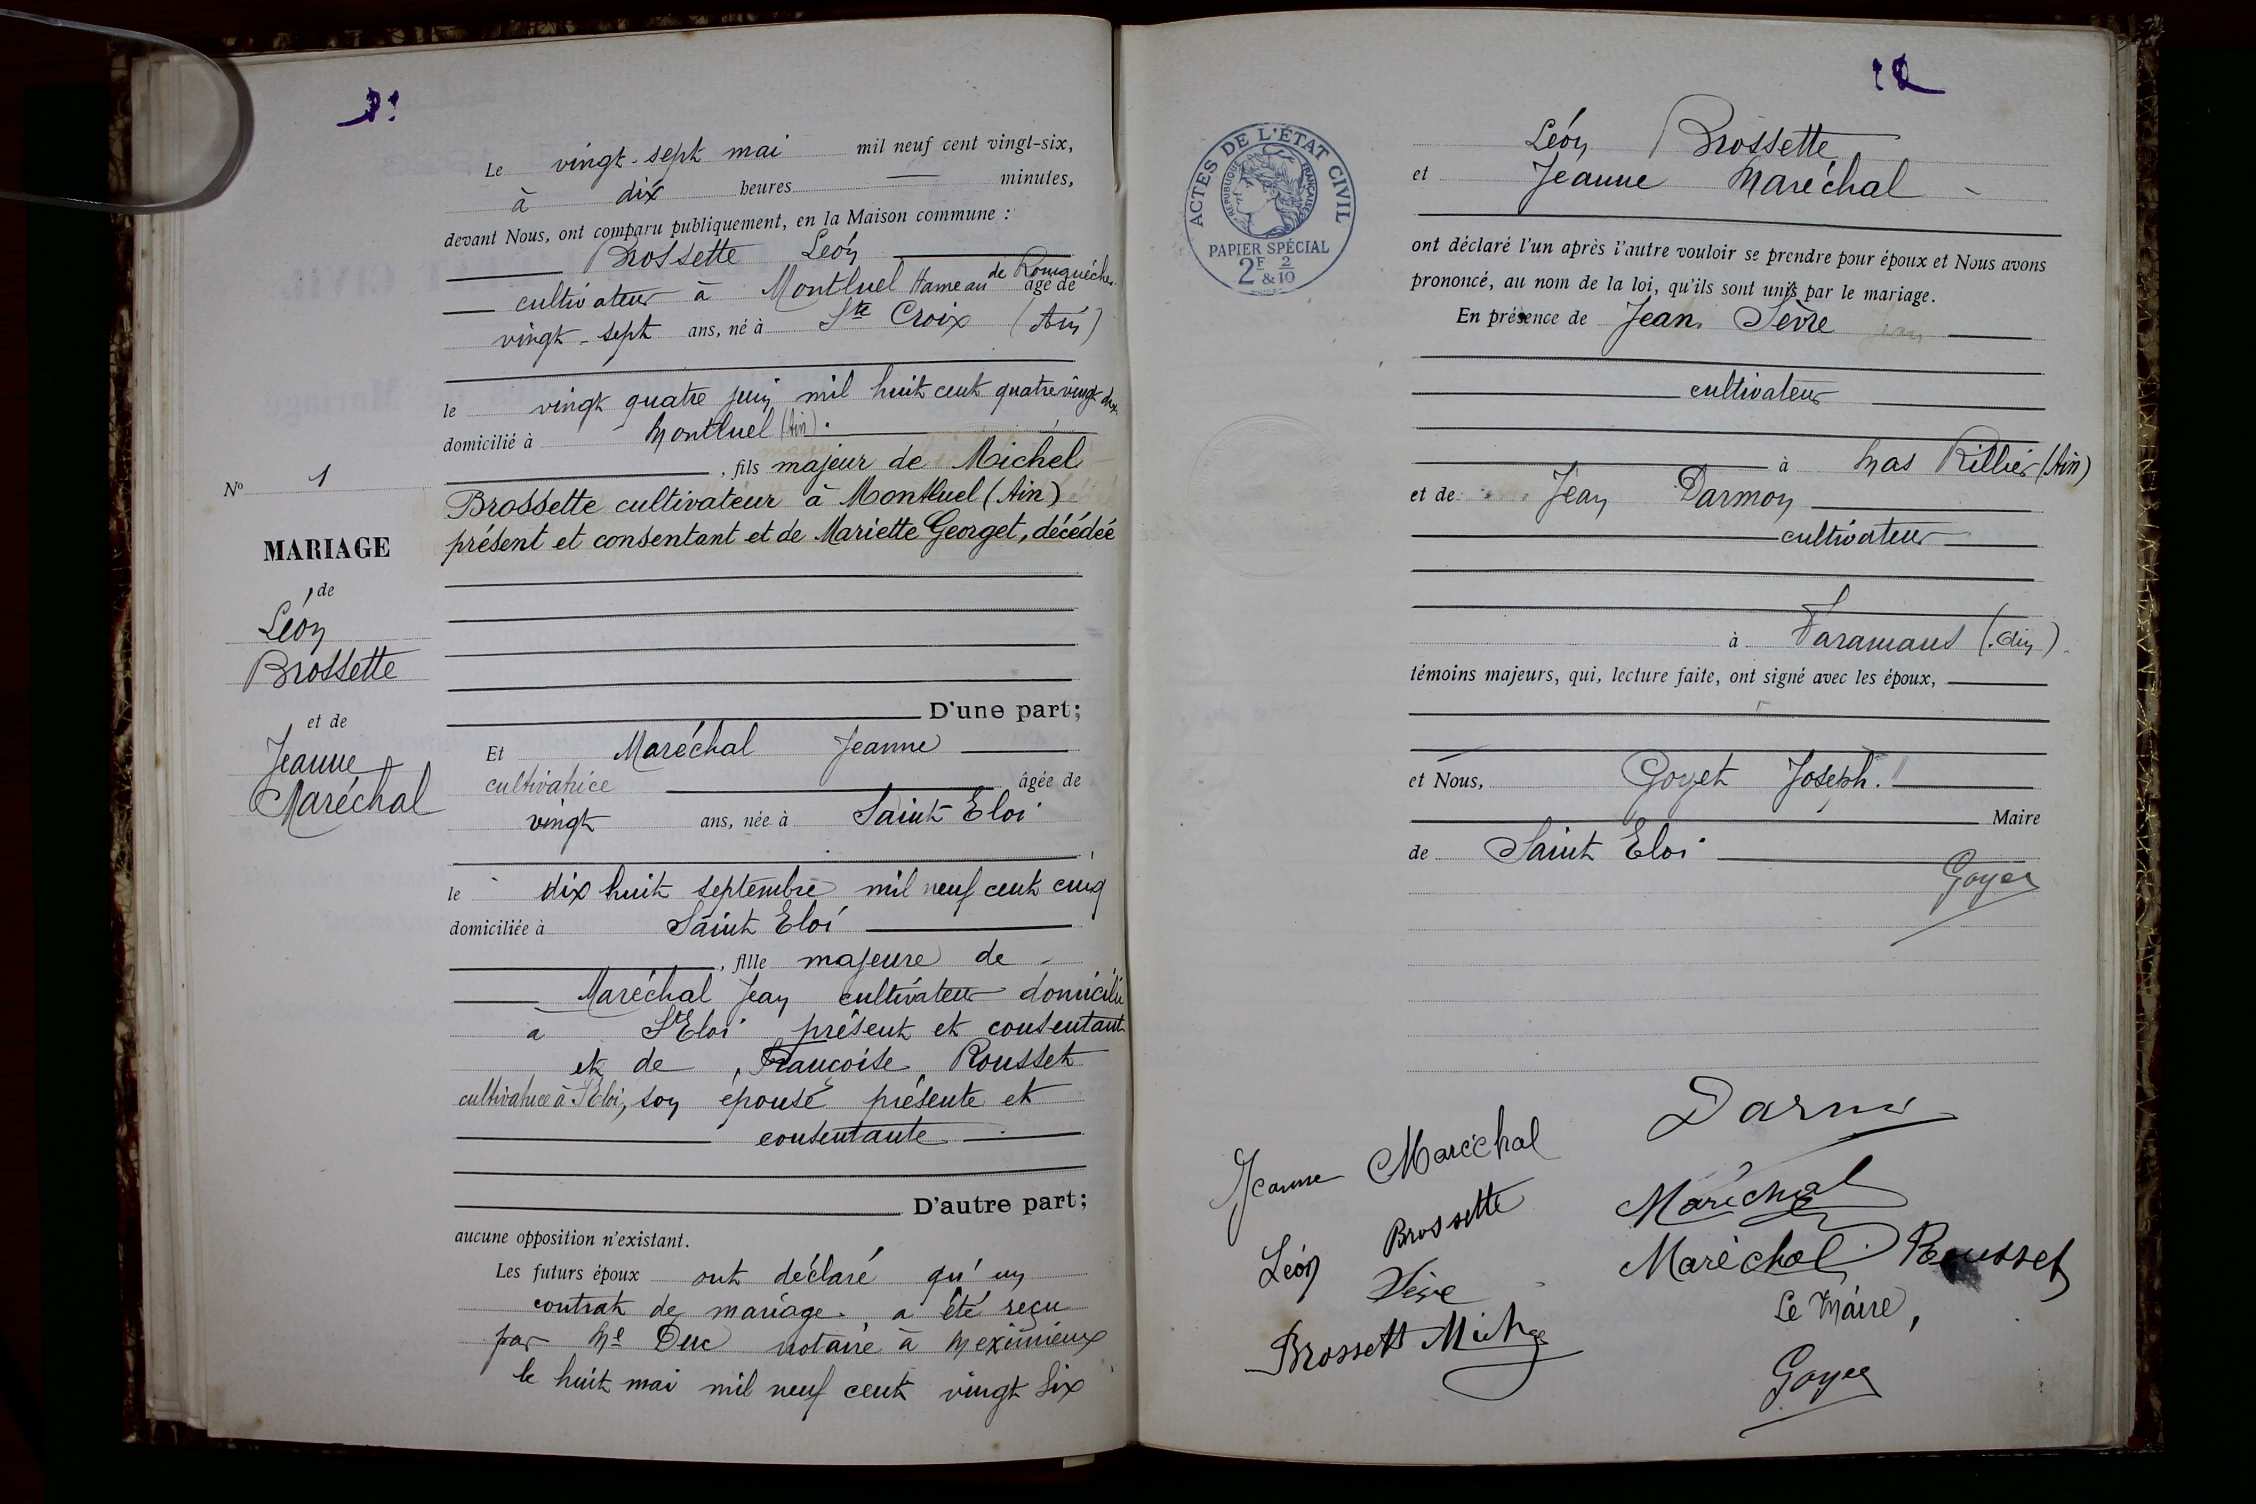 Le vingt-sept mai mil neuf cent vingt-six,
à dix heures — minutes,
devant Nous, ont comparu publiquement, en la Maison commune :
Brossette Léon
cultivateur à Montluel Hameau de Romanèche âgé de
vingt-sept ans, né à Ste Croix (Ain)
le vingt quatre juin mil huit cent quatre vingt dix
domicilié à Montluel (Ain).
, fils majeur de Michel
Brossette cultivateur à Montluel (Ain)
présent et consentant et de Mariette Georget, décédée
D'une part;
Et Maréchal Jeanne
cultivatrice âgée de
vingt ans, née à Saint Eloi
le dix huit septembre mil neuf cent cinq
domiciliée à Saint Eloi
, fille majeure de
Maréchal Jean cultivateur domicilié
à St Eloi présent et consentant
et de Françoise Rousset
cultivatrice à St Eloi, son épouse présente et
consentante
D'autre part;
aucune opposition n'existant.
Les futurs époux ont déclaré qu'un
contrat de mariage a été reçu
par Me Duc notaire à Meximieux
le huit mai mil neuf cent vingt six
No 1
MARIAGE
de
Léon
Brossette
et de
Jeanne
Maréchal
ACTES DE L'ÉTAT CIVIL
RÉPUBLIQUE FRANÇAISE
PAPIER SPÉCIAL
2F & 2/10
Léon Brossette
et Jeanne Maréchal
ont déclaré l'un après l'autre vouloir se prendre pour époux et Nous avons
prononcé, au nom de la loi, qu'ils sont unis par le mariage.
En présence de Jean Sève
cultivateur
à Mas Rillier (Ain)
et de Jean Darmon
cultivateur
à Faramans (Ain)
témoins majeurs, qui, lecture faite, ont signé avec les époux,
et Nous, Goyet Joseph.
Maire
de Saint Eloi
Goyet
Darmon
Jeanne Maréchal
Maréchal
Léon Brossette
Maréchal Rousset
Sève
Le Maire,
Brossette Michel
Goyet